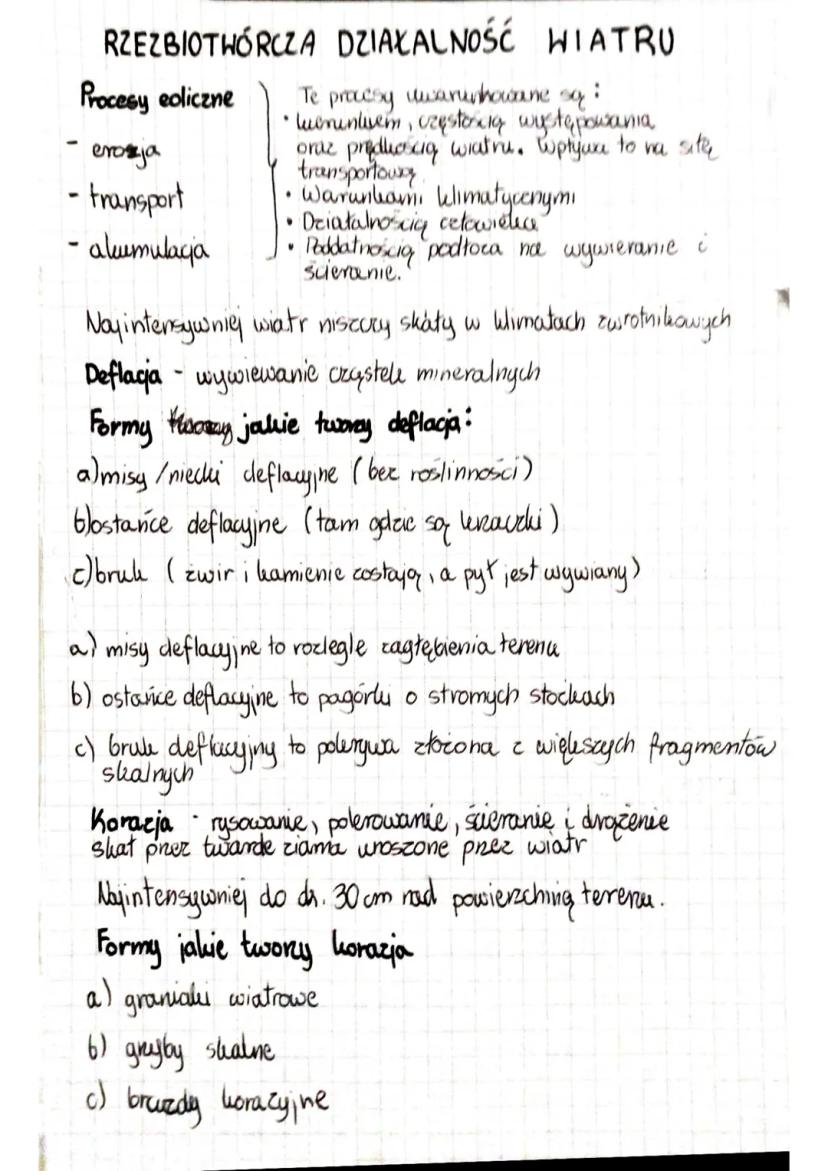 RZEZBIOTWÓRCZA DZIAŁALNOŚĆ WIATRU
Procesy eoliczne
- erozja
- transport
- akumulacja
Te procesy uwarunkowane są:
• kierunkiem, częstością występowania
oraz prędkością wiatru. Wpływa to na siłę
transportową
• Warunkami klimatycznymi
• Działalnością człowieka
• Poddatnością podłoża na wywieranie i
ścieranie.
Najintensywniej wiatr niszczy skały w klimatach zwrotnikowych
Deflacja - wywiewanie cząstek mineralnych
Formy jakie tworzy deflacja:
a) misy / niecki deflacyjne (bez roślinności)
b) ostańce deflacyjne (tam gdzie są krzaczki)
c) bruk ( żwir i kamienie zostają, a pył jest wywiany)
a) misy deflacyjne to rozległe zagłębienia terenu
b) ostańce deflacyjne to pagórki o stromych stockach
c) bruk deflacyjny to pokrywa złożona z większych fragmentów
skalnych
Korazja - rysowanie, polerowanie, ścieranię i drążenie
skał przez twarde ziarna unoszone przez wiatr
Najintensywniej do ok. 30 cm nad powierzchnią terenu.
Formy jakie tworzy korazja
a) graniaki wiatrowe
b) grzyby skalne
c) bruzdy korazyjne